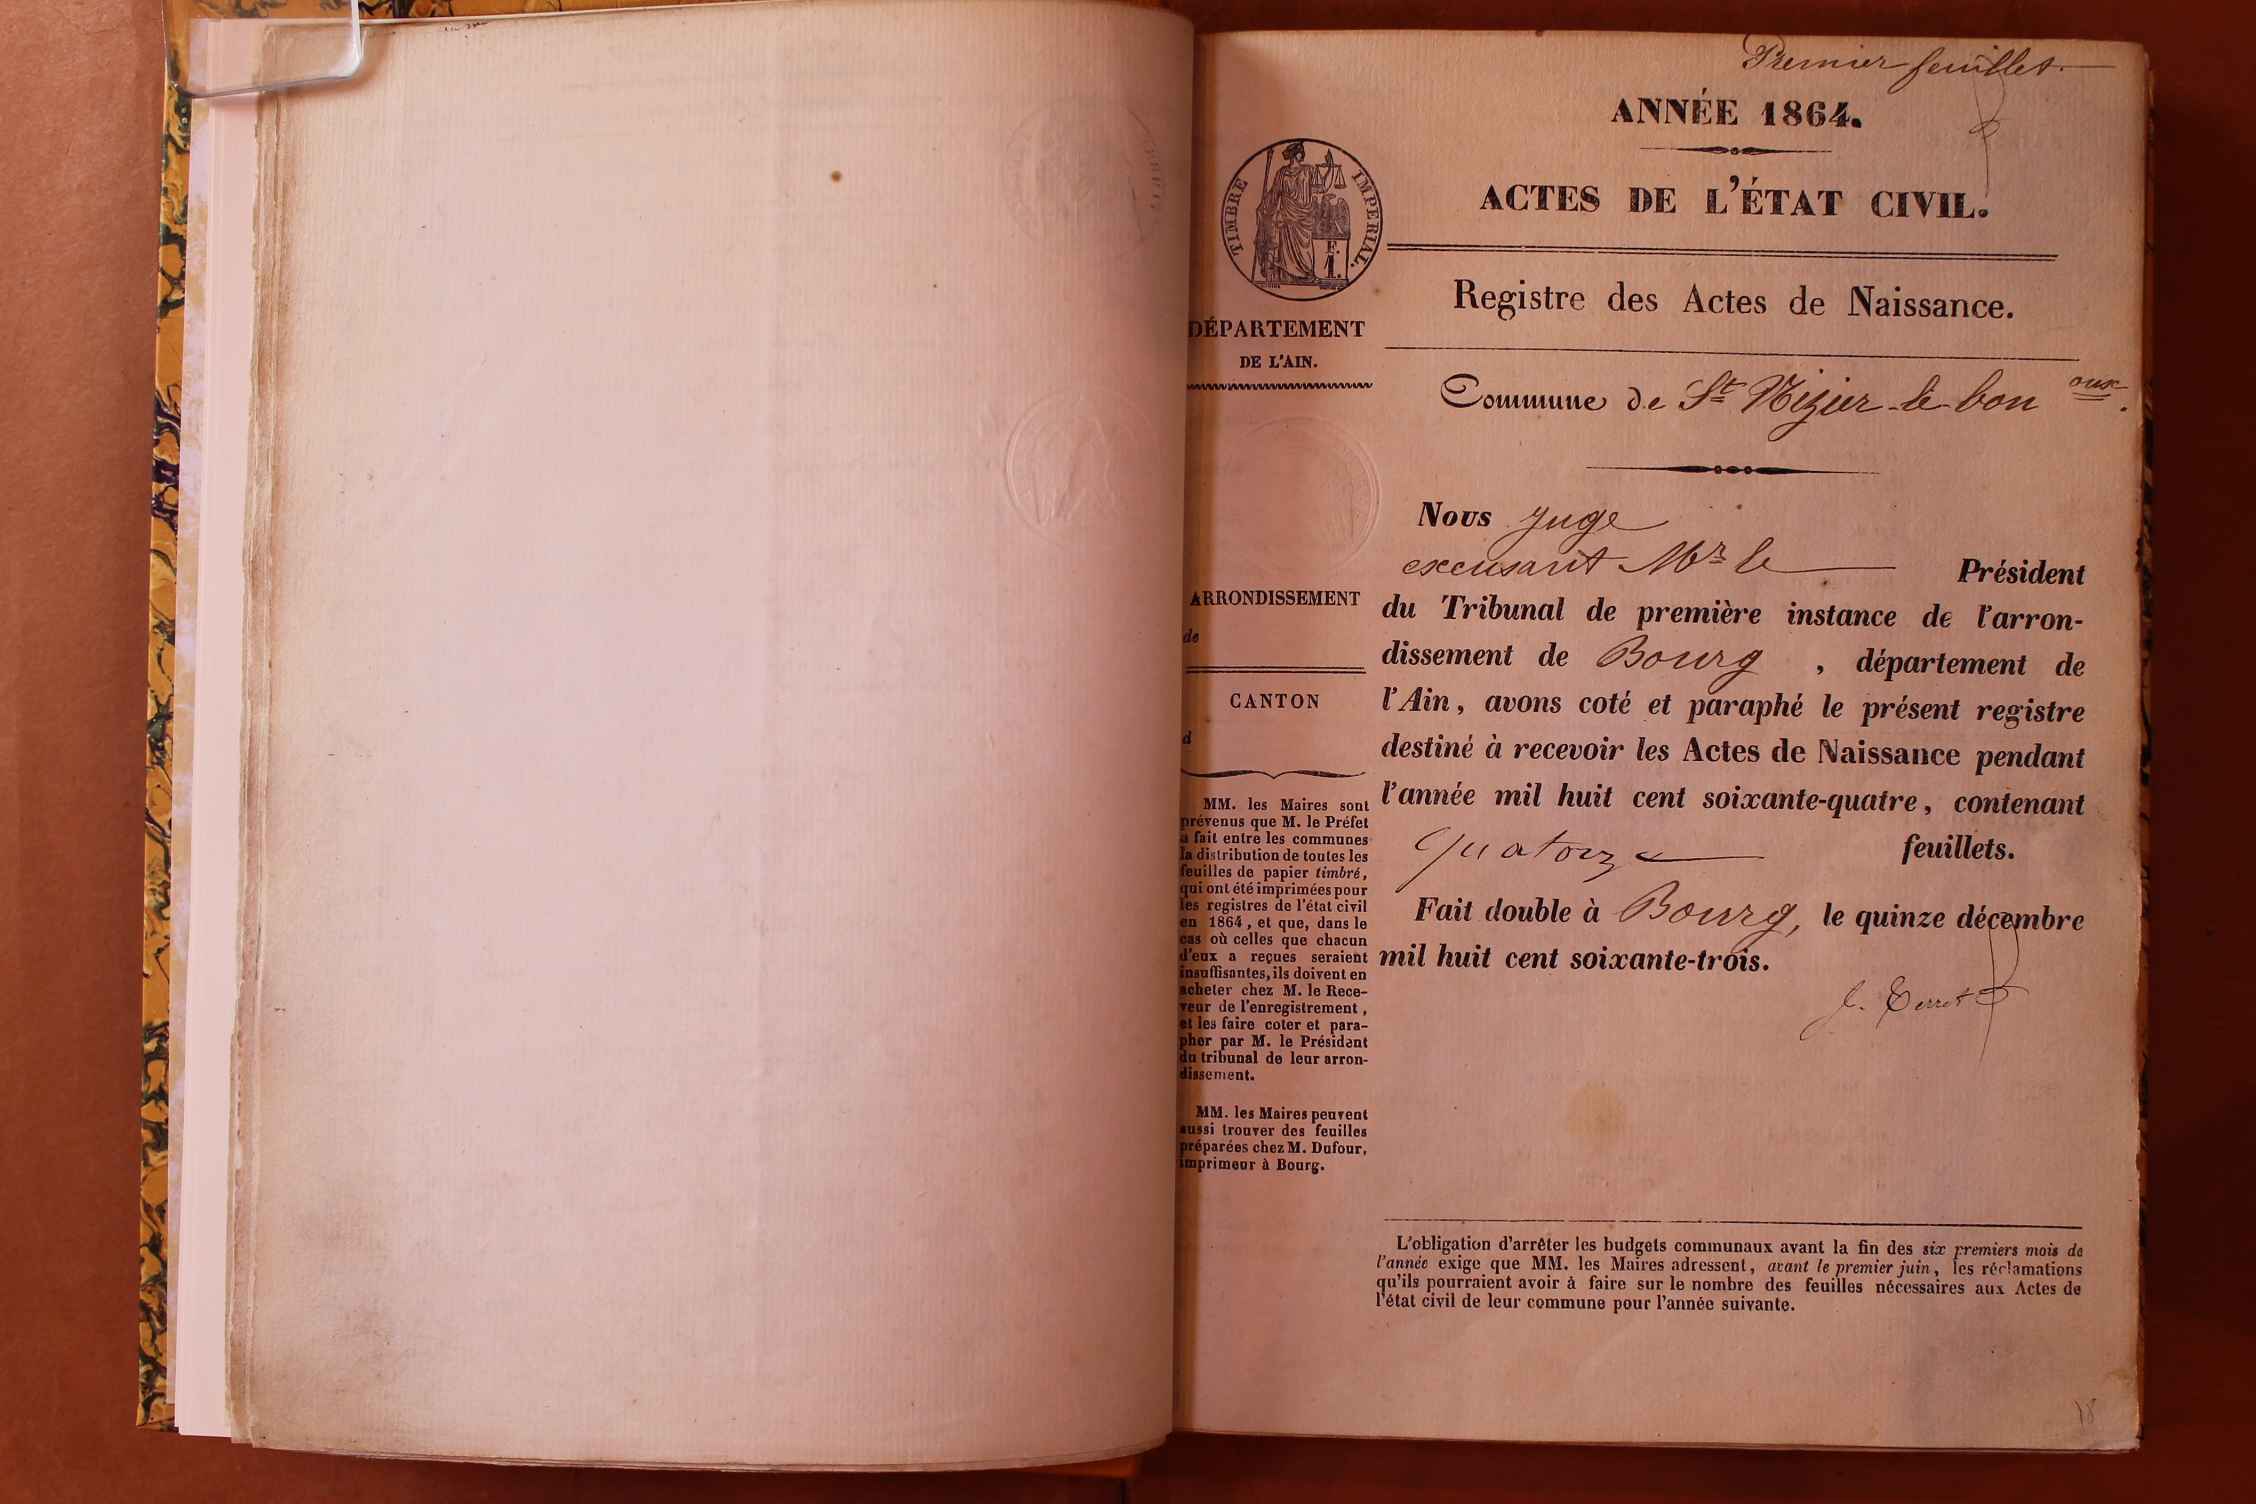 Premier feuillet.
ANNÉE 1864.
ACTES DE L'ÉTAT CIVIL.
TIMBRE IMPERIAL.
F.
1.
Registre des Actes de Naissance.
DÉPARTEMENT
DE L'AIN.
Commune de St Nizier le bou oux.
Nous Juge
excusant Mr le Président
du Tribunal de première instance de l'arron-
dissement de Bourg, département de
l'Ain, avons coté et paraphé le présent registre
destiné à recevoir les Actes de Naissance pendant
l'année mil huit cent soixante-quatre, contenant
quatorze feuillets.
Fait double à Bourg, le quinze décembre
mil huit cent soixante-trois.
ARRONDISSEMENT
de
CANTON
d
MM. les Maires sont
prévenus que M. le Préfet
a fait entre les communes
la distribution de toutes les
feuilles de papier timbré,
qui ont été imprimées pour
les registres de l'état civil
en 1864, et que, dans le
cas où celles que chacun
d'eux a reçues seraient
insuffisantes, ils doivent en
acheter chez M. le Rece-
veur de l'enregistrement,
et les faire coter et para-
pher par M. le Président
du tribunal de leur arron-
dissement.
MM. les Maires peuvent
aussi trouver des feuilles
préparées chez M. Dufour,
imprimeur à Bourg.
L'obligation d'arrêter les budgets communaux avant la fin des six premiers mois de
l'année exige que MM. les Maires adressent, avant le premier juin, les réclamations
qu'ils pourraient avoir à faire sur le nombre des feuilles nécessaires aux Actes de
l'état civil de leur commune pour l'année suivante.
18